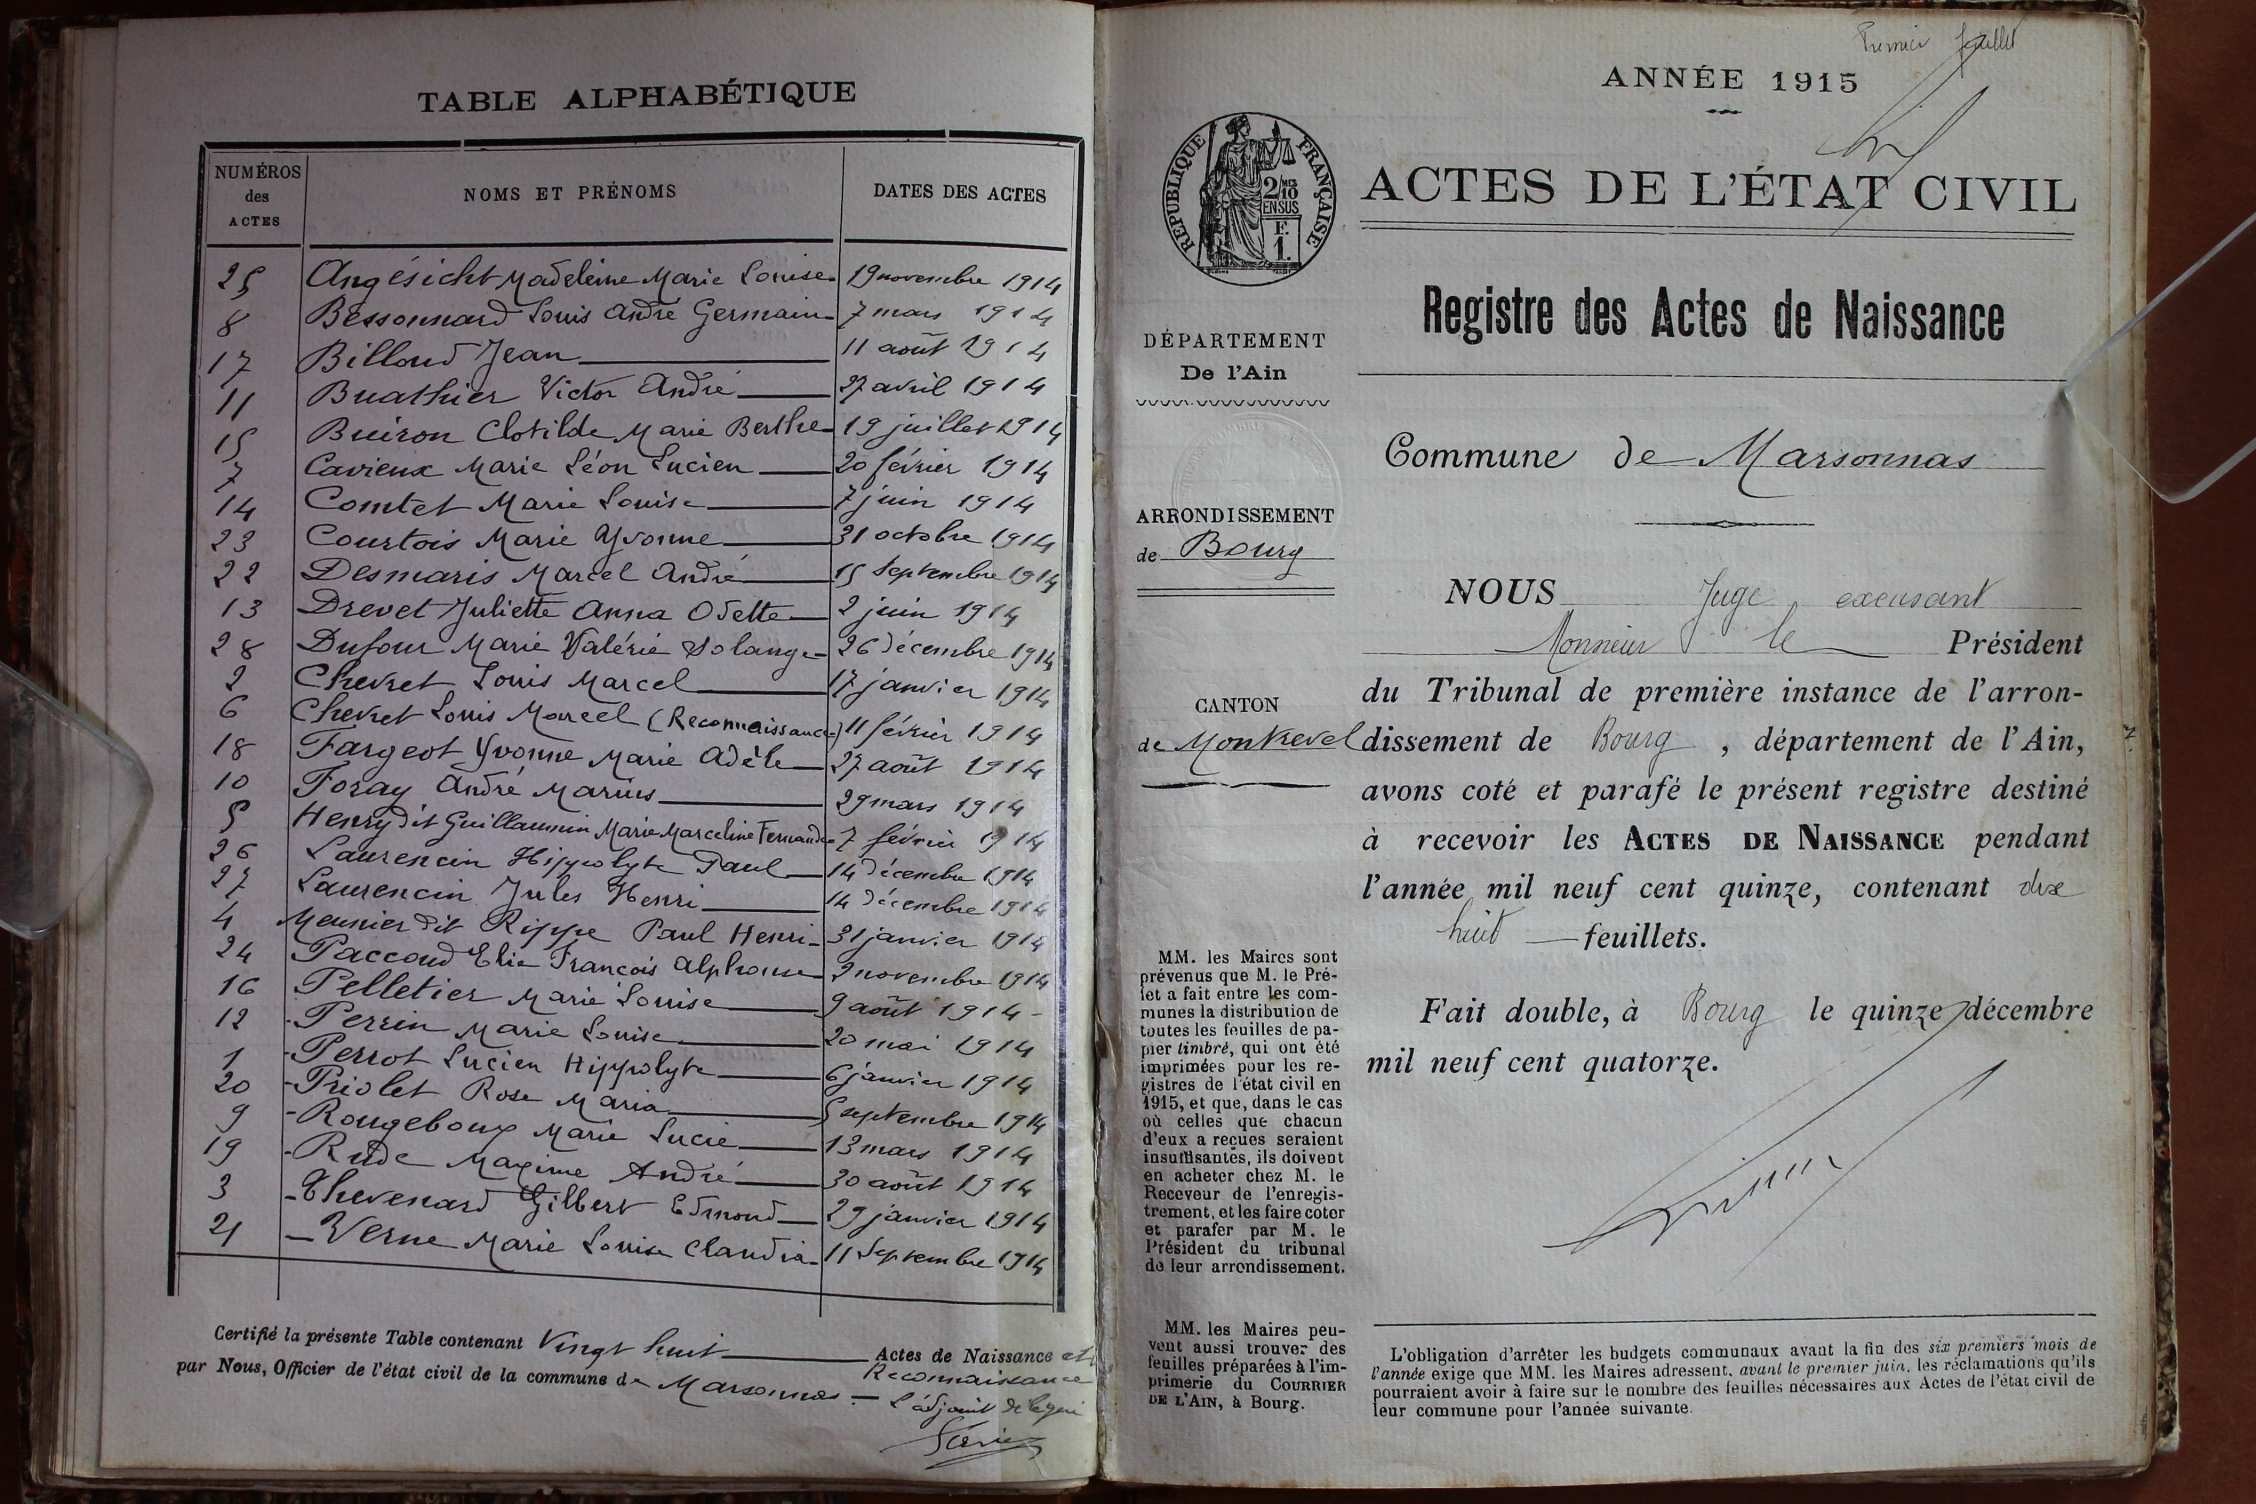 TABLE ALPHABÉTIQUE
NUMÉROS des ACTES NOMS ET PRÉNOMS DATES DES ACTES
25 Angésicht Madeleine Marie Louise 19 novembre 1914
8 Bessonnard Louis André Germain 7 mars 1914
17 Billoud Jean 11 août 1914
11 Buathier Victor André 27 avril 1914
15 Buiron Clotilde Marie Berthe 19 juillet 1914
7 Cavieux Marie Léon Lucien 20 février 1914
14 Comtet Marie Louise 7 juin 1914
23 Courtois Marie Yvonne 31 octobre 1914
22 Desmaris Marcel André 15 Septembre 1914
13 Drevet Juliette Anna Odette 2 juin 1914
28 Dufour Marie Valérie Solange 26 décembre 1914
2 Chevret Louis Marcel 17 janvier 1914
6 Chevret Louis Marcel (Reconnaissance) 11 février 1914
18 Fargeot Yvonne Marie Adèle 27 août 1914
10 Foray André Marius 29 mars 1914
5 Henry dit Guillaumin Marie Marceline Fernande 7 février 1914
26 Laurencin Hippolyte Paul 14 décembre 1914
27 Laurencin Jules Henri 14 décembre 1914
4 Meunier dit Rippe Paul Henri 31 janvier 1914
24 Paccoud Elie François Alphonse 2 novembre 1914
16 Pelletier Marie Louise 9 août 1914
12 Perrin Marie Louise 20 mai 1914
1 Perrot Lucien Hippolyte 6 janvier 1914
20 Priolet Rose Maria 5 septembre 1914
9 Rougeboux Marie Lucie 13 mars 1914
19 Rude Maxime André 30 août 1914
3 Thevenard Gilbert Edmond 29 janvier 1914
21 Verne Marie Louise Claudia 11 Septembre 1914
Certifié la présente Table contenant Vingt huit Actes de Naissance et
Reconnaissance
par Nous, Officier de l'état civil de la commune de Marsonnas
L'adjoint délégué
Premier feuillet
ANNÉE 1915
RÉPUBLIQUE FRANÇAISE
2/10 MES
EN SUS
F.
1.
ACTES DE L'ÉTAT CIVIL
Registre des Actes de Naissance
DÉPARTEMENT
De l'Ain
Commune de Marsonnas
ARRONDISSEMENT
de Bourg
CANTON
de Montrevel
NOUS Juge excusant
Monsieur le Président
du Tribunal de première instance de l'arron-
dissement de Bourg, département de l'Ain,
avons coté et parafé le présent registre destiné
à recevoir les ACTES DE NAISSANCE pendant
l'année mil neuf cent quinze, contenant dix
huit feuillets.
Fait double, à Bourg le quinze décembre
mil neuf cent quatorze.
MM. les Maires sont
prévenus que M. le Pré-
fet a fait entre les com-
munes la distribution de
toutes les feuilles de pa-
pier timbré, qui ont été
imprimées pour les re-
gistres de l'état civil en
1915, et que, dans le cas
où celles que chacun
d'eux a reçues seraient
insuffisantes, ils doivent
en acheter chez M. le
Receveur de l'enregis-
trement, et les faire coter
et parafer par M. le
Président du tribunal
de leur arrondissement.
MM. les Maires peu-
vent aussi trouver des
feuilles préparées à l'im-
primerie du COURRIER
DE L'AIN, à Bourg.
L'obligation d'arrêter les budgets communaux avant la fin des six premiers mois de
l'année exige que MM. les Maires adressent, avant le premier juin, les réclamations qu'ils
pourraient avoir à faire sur le nombre des feuilles nécessaires aux Actes de l'état civil de
leur commune pour l'année suivante.